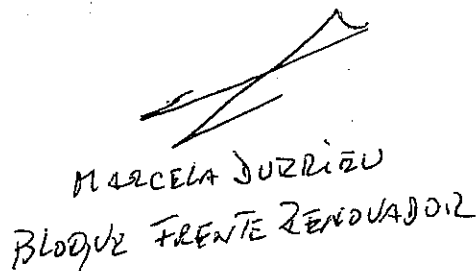 MARCELA DURRIEU
BLOQUE FRENTE RENOVADOR